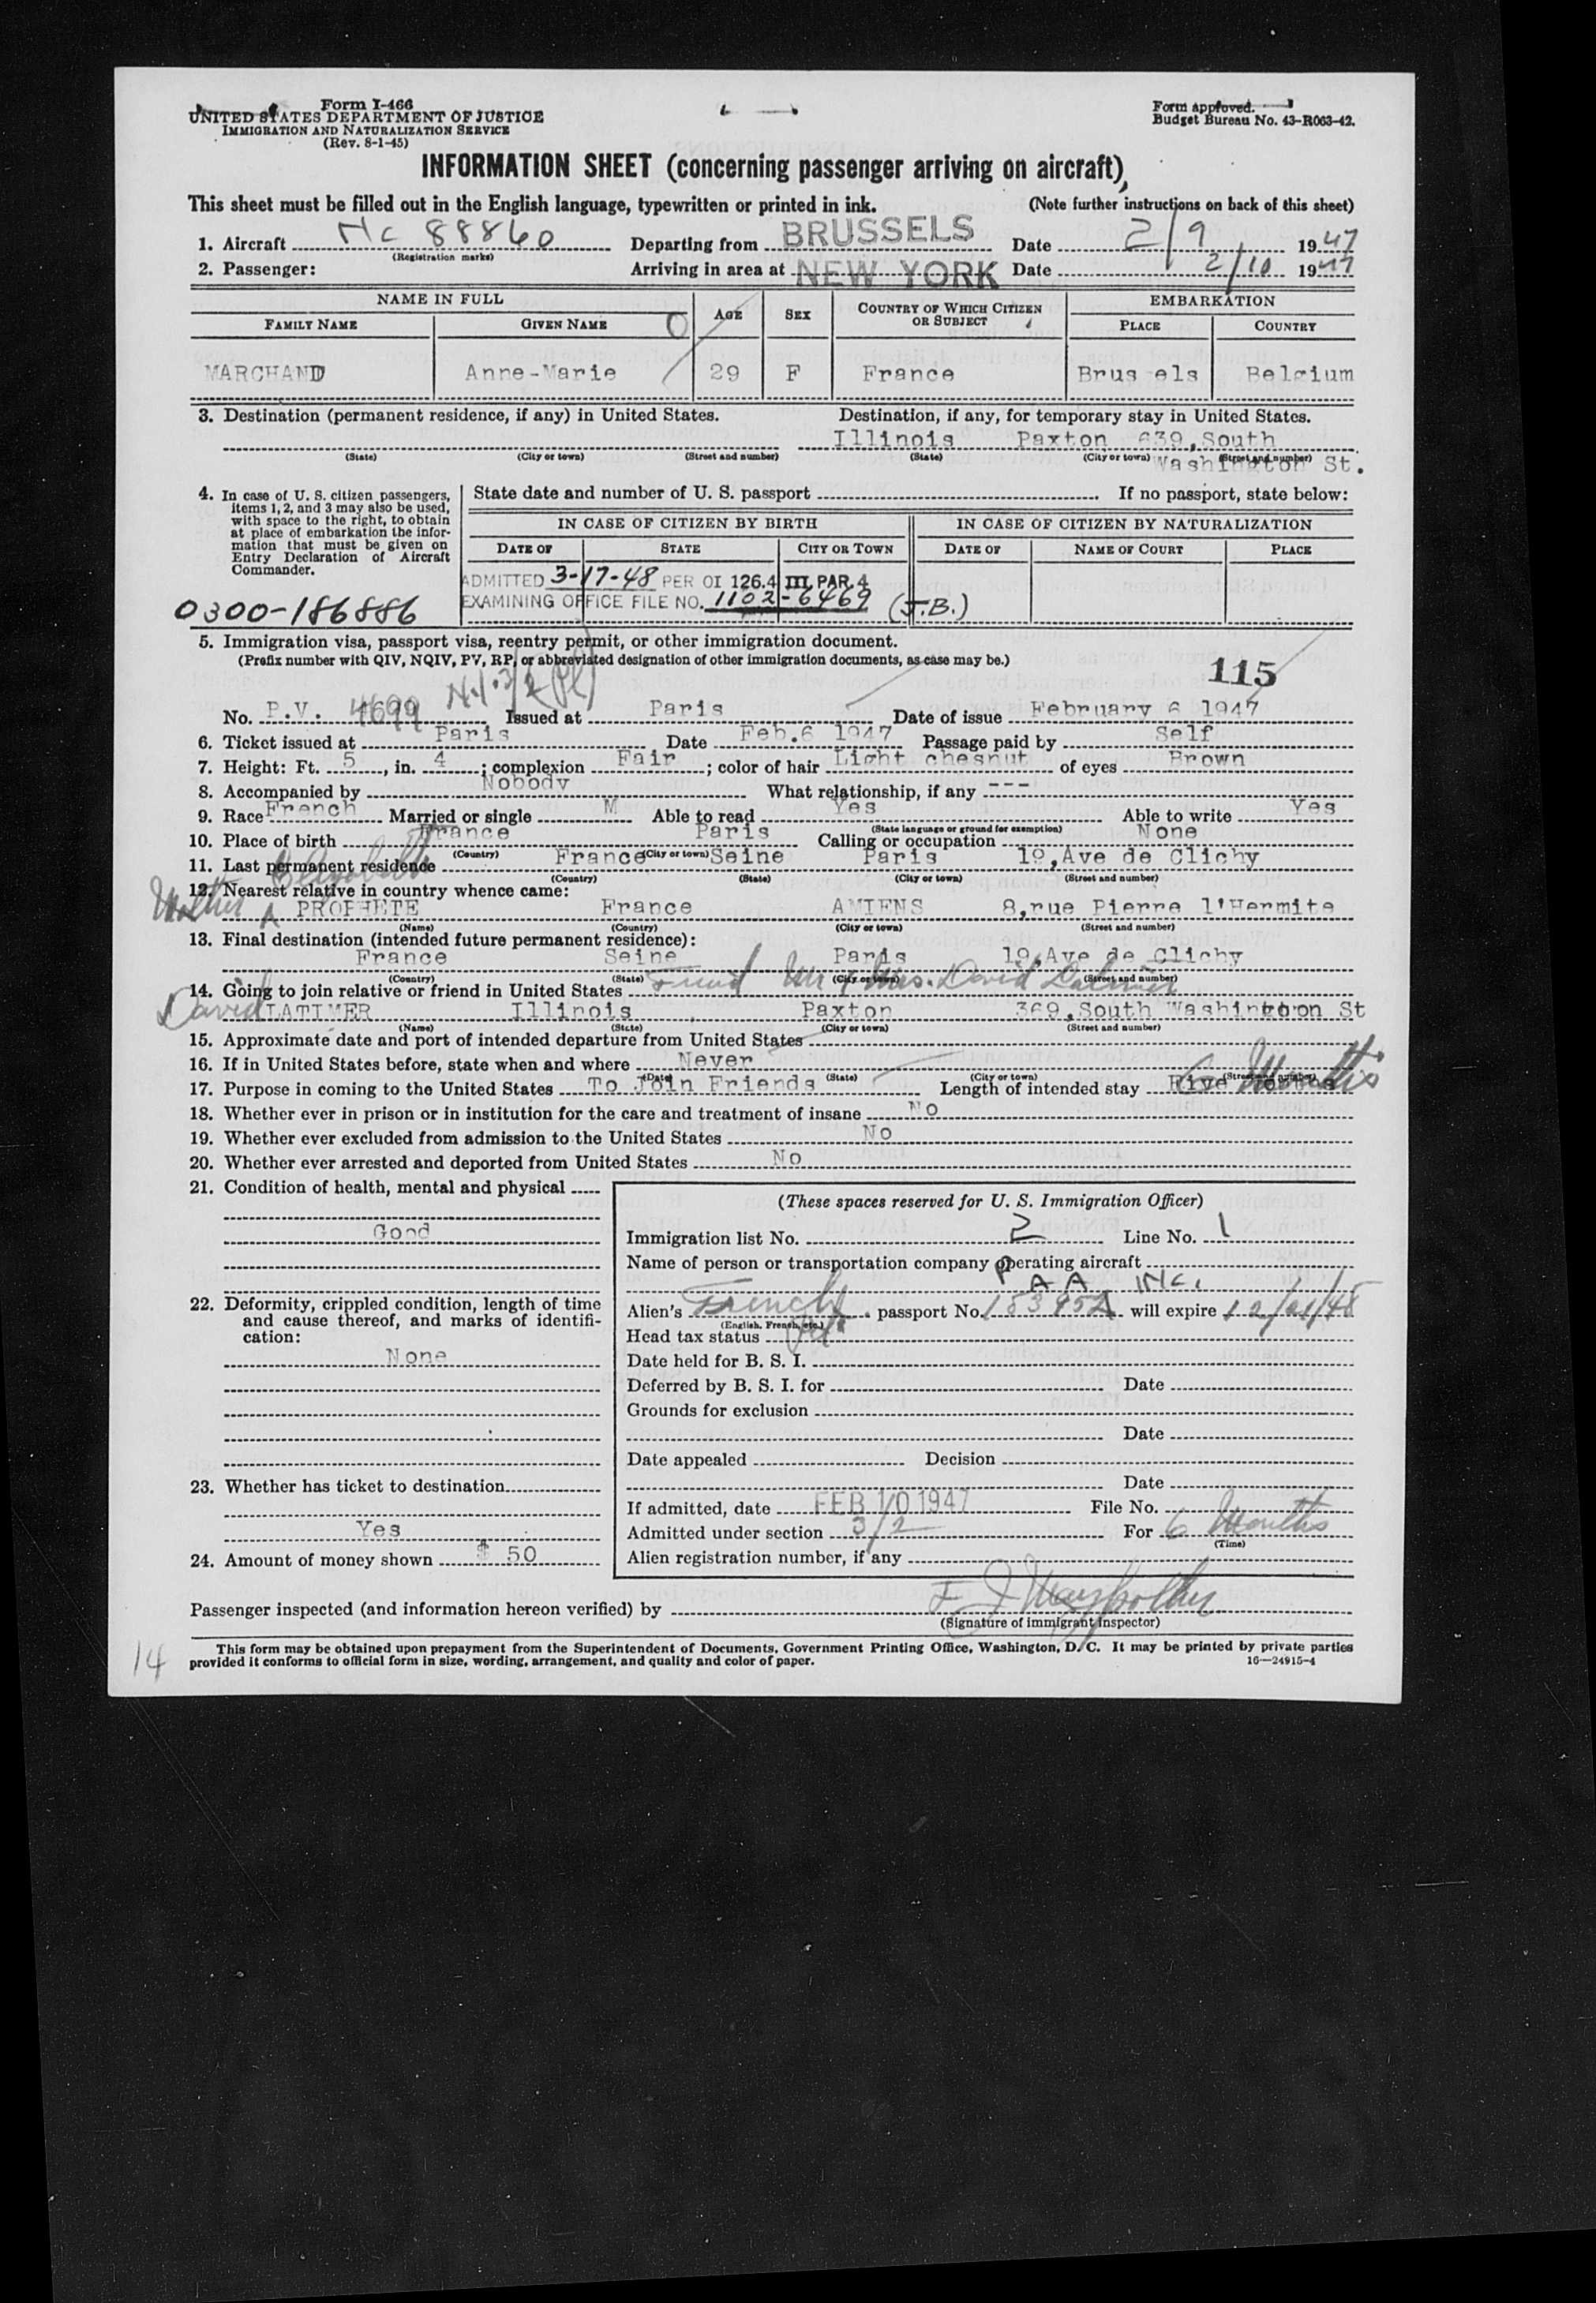 Form I-466
UNITED STATES DEPARTMENT OF JUSTICE
IMMIGRATION AND NATURALIZATION SERVICE
(Rev. 8-1-45)
Form approved.
Budget Bureau No. 43-R063-42.
INFORMATION SHEET (concerning passenger arriving on aircraft)
This sheet must be filled out in the English language, typewritten or printed in ink. (Note further instructions on back of this sheet)
1. Aircraft Nc 88860 Departing from BRUSSELS Date 2/9 1947
(Registration marks)
2. Passenger: Arriving in area at NEW YORK Date 2/10 1947
NAME IN FULL AGE SEX COUNTRY OF WHICH CITIZEN OR SUBJECT EMBARKATION
FAMILY NAME GIVEN NAME PLACE COUNTRY
MARCHAND Anne-Marie 29 F France Brussels Belgium
3. Destination (permanent residence, if any) in United States. Destination, if any, for temporary stay in United States.
Illinois Paxton 639,South
(State) (City or town) (Street and number) (State) (City or town) (Street and number)
Washington St.
4. In case of U. S. citizen passengers, items 1, 2, and 3 may also be used, with space to the right, to obtain at place of embarkation the information that must be given on Entry Declaration of Aircraft Commander.
State date and number of U. S. passport If no passport, state below:
IN CASE OF CITIZEN BY BIRTH IN CASE OF CITIZEN BY NATURALIZATION
DATE OF STATE CITY OR TOWN DATE OF NAME OF COURT PLACE
ADMITTED 3-17-48 PER OI 126.4 III PAR. 4
EXAMINING OFFICE FILE NO. 1102-6469 (J.B.)
0300-186886
5. Immigration visa, passport visa, reentry permit, or other immigration document.
(Prefix number with QIV, NQIV, PV, RP, or abbreviated designation of other immigration documents, as case may be.)
115
No. P.V. 4699 Issued at Paris Date of issue February 6 1947
6. Ticket issued at Paris Date Feb.6 1947 Passage paid by Self
7. Height: Ft. 5, in. 4; complexion Fair; color of hair Light chesnut of eyes Brown
8. Accompanied by Nobody What relationship, if any ---
9. Race French Married or single M Able to read Yes Able to write Yes
(State language or ground for exemption)
10. Place of birth France Paris Calling or occupation None
(Country) (City or town)
11. Last permanent residence France Seine Paris 19,Ave de Clichy
(Country) (State) (City or town) (Street and number)
12. Nearest relative in country whence came:
Mother A PROPHETE France AMIENS 8,rue Pierre l'Hermite
(Name) (Country) (City or town) (Street and number)
13. Final destination (intended future permanent residence):
France Seine Paris 19,Ave de Clichy
(Country) (State) (City or town) (Street and number)
14. Going to join relative or friend in United States Friend Mr & Mrs. David Latimer
David LATIMER Illinois Paxton 369,South Washington St
(Name) (State) (City or town) (Street and number)
15. Approximate date and port of intended departure from United States
16. If in United States before, state when and where Never
(Date) (State) (City or town) (Street and number)
17. Purpose in coming to the United States To Join Friends Length of intended stay Five Months 6 Months
18. Whether ever in prison or in institution for the care and treatment of insane No
19. Whether ever excluded from admission to the United States No
20. Whether ever arrested and deported from United States No
21. Condition of health, mental and physical
Good
22. Deformity, crippled condition, length of time and cause thereof, and marks of identification:
None
23. Whether has ticket to destination
Yes
24. Amount of money shown $ 50
(These spaces reserved for U. S. Immigration Officer)
Immigration list No. 2 Line No. 1
Name of person or transportation company operating aircraft
P A A INC.
Alien's French passport No. 183952 will expire 12/21/48
(English, French, etc.)
Head tax status
Date held for B. S. I.
Deferred by B. S. I. for Date
Grounds for exclusion
Date
Date appealed Decision
Date
If admitted, date FEB 10 1947 File No.
Admitted under section 3/2 For 6 Months
(Time)
Alien registration number, if any
Passenger inspected (and information hereon verified) by
(Signature of immigrant inspector)
This form may be obtained upon prepayment from the Superintendent of Documents, Government Printing Office, Washington, D. C. It may be printed by private parties
provided it conforms to official form in size, wording, arrangement, and quality and color of paper. 16—24915-4
14